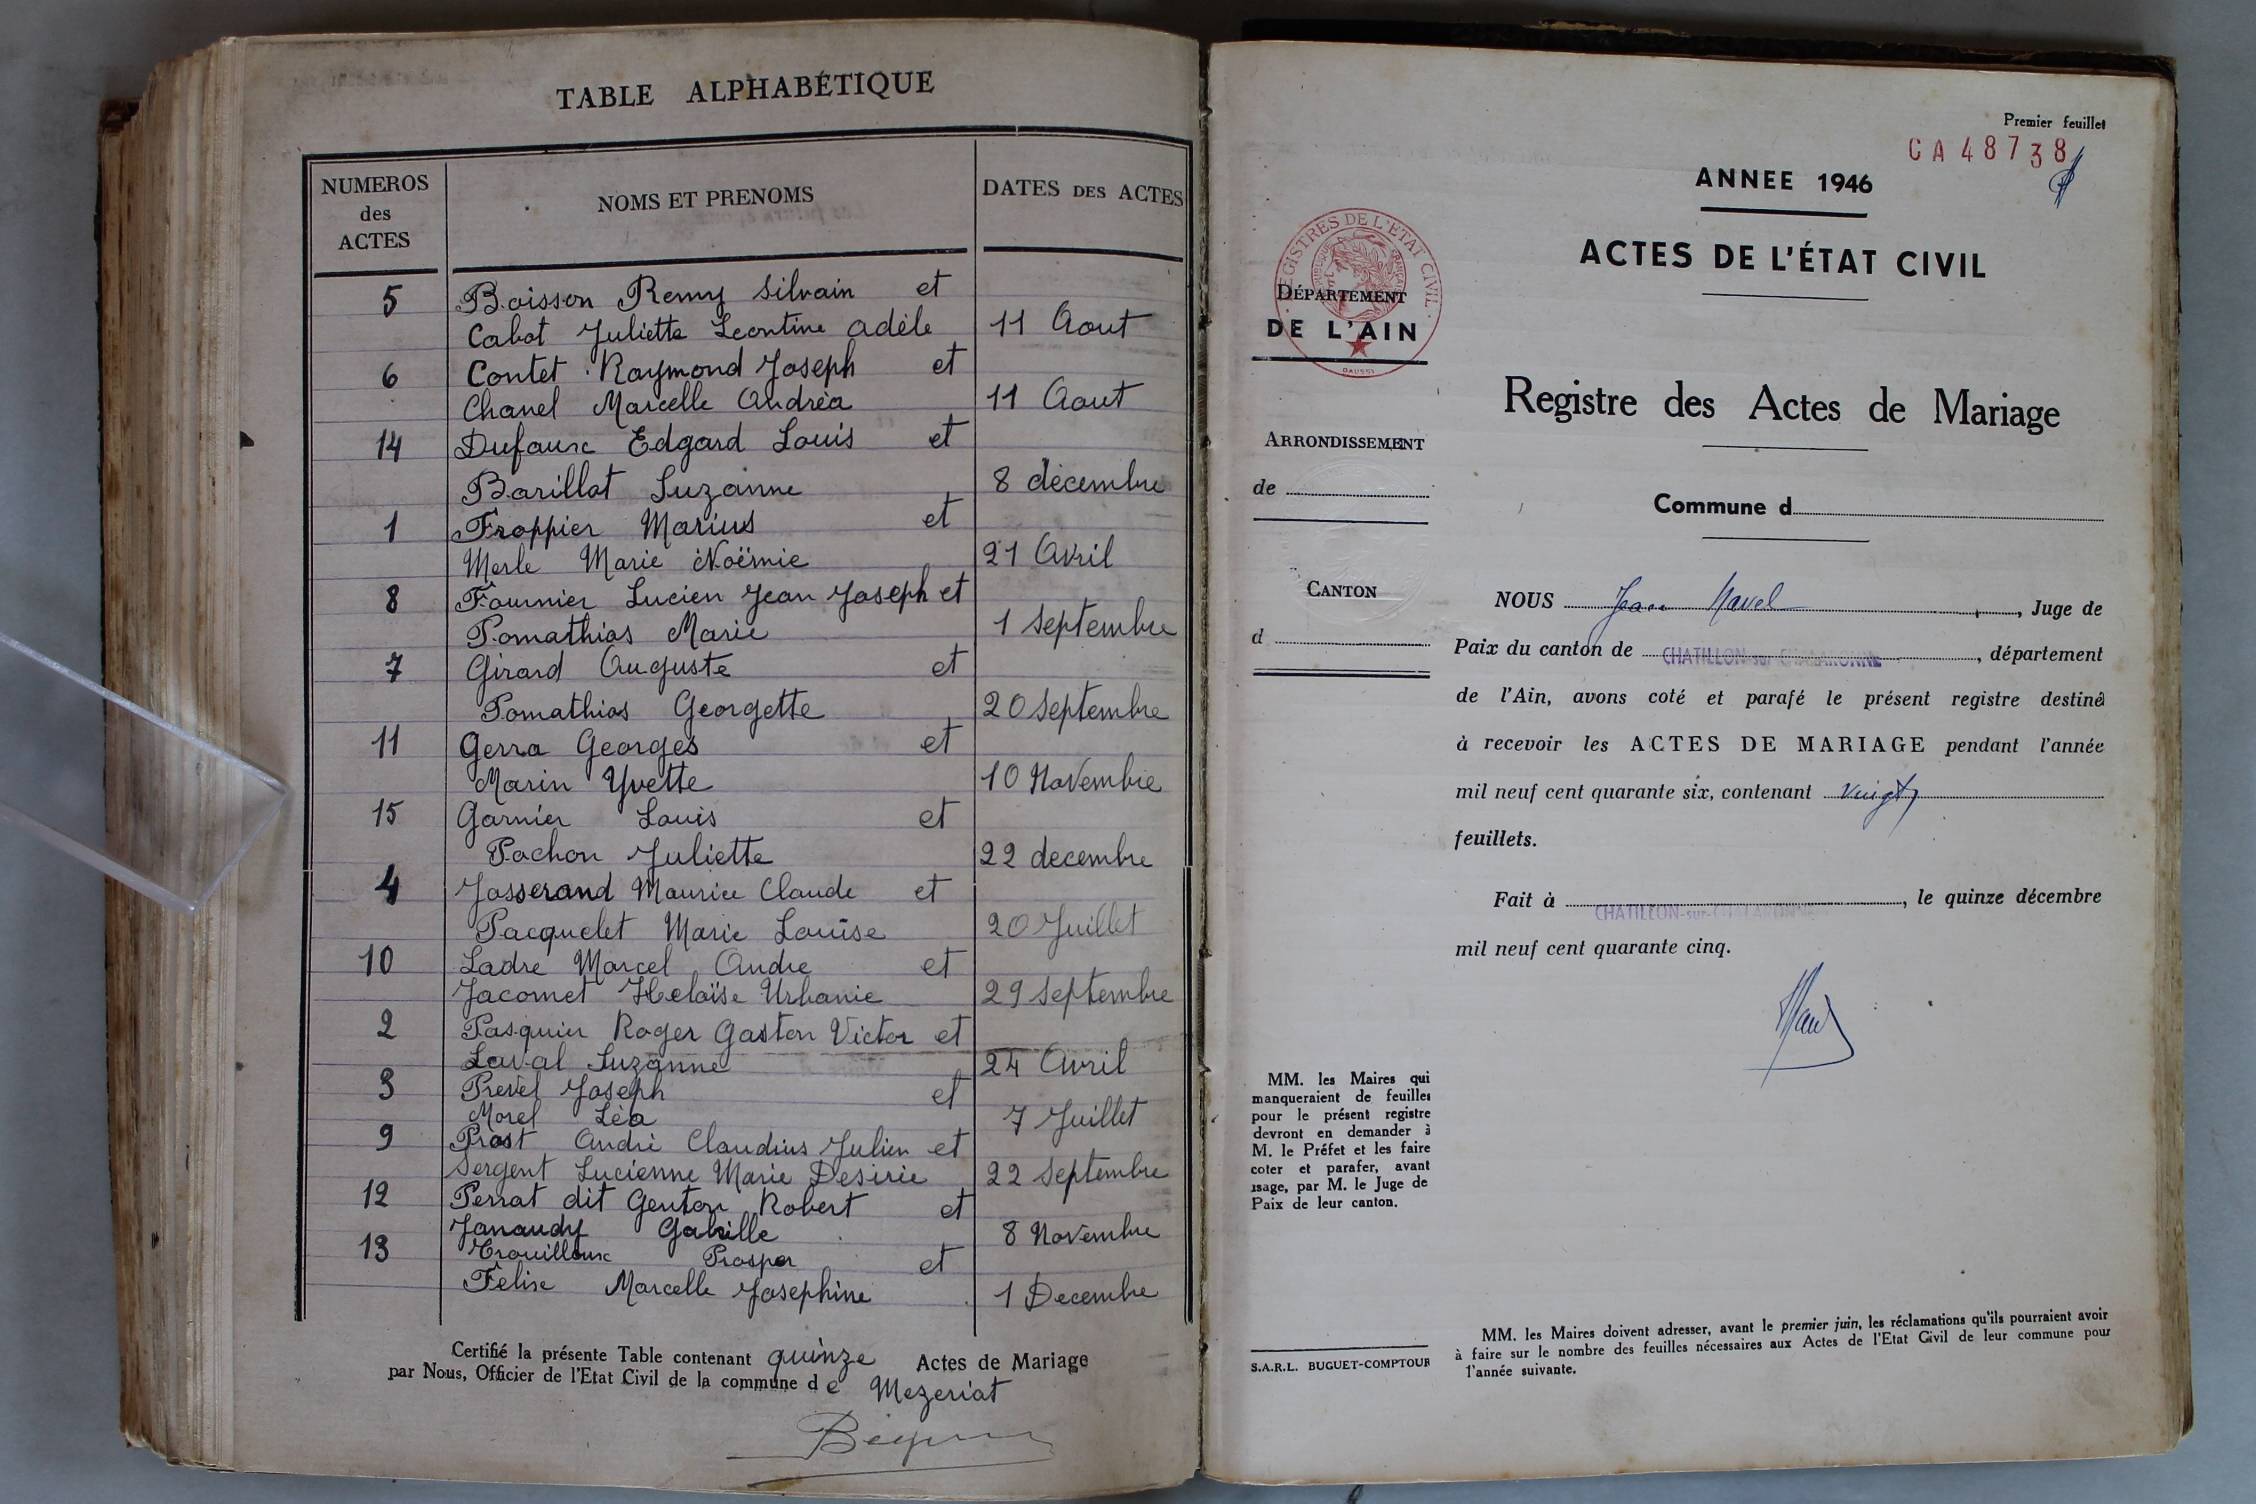 TABLE ALPHABÉTIQUE
NUMEROS des ACTES NOMS ET PRENOMS DATES DES ACTES
5 Boisson Remy Silvain et
Cabot Juliette Leontine Adèle 11 Aout
6 Contet Raymond Joseph et
Chanel Marcelle Andréa 11 Aout
14 Dufaux Edgard Louis et
Barillot Suzanne 8 décembre
1 Froppier Marius et
Merle Marie Noëmie 21 Avril
8 Fournier Lucien Jean Joseph et
Pomathios Marie 1 Septembre
7 Girard Auguste et
Pomathios Georgette 20 Septembre
11 Gerra Georges et
Marin Yvette 10 Novembre
15 Garnier Louis et
Pochon Juliette 22 decembre
4 Josserand Maurice Claude et
Pacquelet Marie Louise 20 Juillet
10 Ladre Marcel Andre et
Jacomet Heloïse Urbanie 29 Septembre
2 Pasquier Roger Gaston Victor et
Laval Suzanne 24 Avril
3 Prevel Joseph et
Morel Léa 7 Juillet
9 Prost André Claudius Julien et
Sergent Lucienne Marie Desirie 22 Septembre
12 Perrat dit Genton Robert et
Janaudy Gabrille 8 Novembre
13 Trouilloux Prosper et
Félix Marcelle Josephine 1 Decembre
Certifié la présente Table contenant quinze Actes de Mariage
par Nous, Officier de l'Etat Civil de la commune de Mezeriat
Premier feuillet
CA 48738
ANNEE 1946
ACTES DE L'ÉTAT CIVIL
REGISTRES DE L'ETAT CIVIL
DÉPARTEMENT
DE L'AIN
Registre des Actes de Mariage
ARRONDISSEMENT
de
Commune d
CANTON
d
NOUS Jean Navel, Juge de
Paix du canton de CHATILLON-sur-CHALARONNE, département
de l'Ain, avons coté et parafé le présent registre destiné
à recevoir les ACTES DE MARIAGE pendant l'année
mil neuf cent quarante six, contenant vingt
feuillets.
Fait à CHATILLON-sur-CHALARONNE, le quinze décembre
mil neuf cent quarante cinq.
MM. les Maires qui
manqueraient de feuilles
pour le présent registre
devront en demander à
M. le Préfet et les faire
coter et parafer, avant
usage, par M. le Juge de
Paix de leur canton.
S.A.R.L. BUGUET-COMPTOUR
MM. les Maires doivent adresser, avant le premier juin, les réclamations qu'ils pourraient avoir
à faire sur le nombre des feuilles nécessaires aux Actes de l'Etat Civil de leur commune pour
l'année suivante.